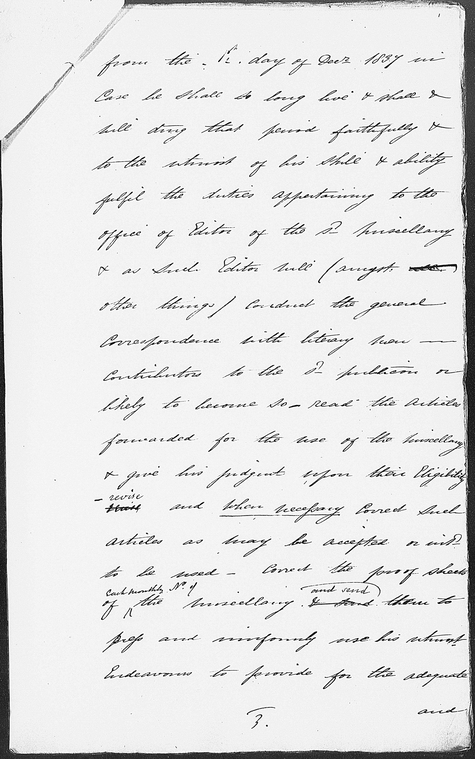 from the 1st. day of Decr 1837 in
Case he shall so long live & shall &
will durg that period faithfully &
to the utmost of his skill & ability
fulfil the duties appertaining to the
office of Editor of the sd Miscellany
& as such Editor will (amongst
other things) conduct the general
Correspondence with literary men —
Contributors to the sd publicon or
likely to become so – read the Articles
forwarded for the use of the Miscellany
& give his judgmt upon their Eligibility
– revise
and when necessary Correct such
articles as may be accepted or intd
to be used – Correct the proof sheets
each monthly No. of and send
of the Miscellany & send them to
press and uniformly use his utmost
Endeavours to provide for the adequate
and
3.